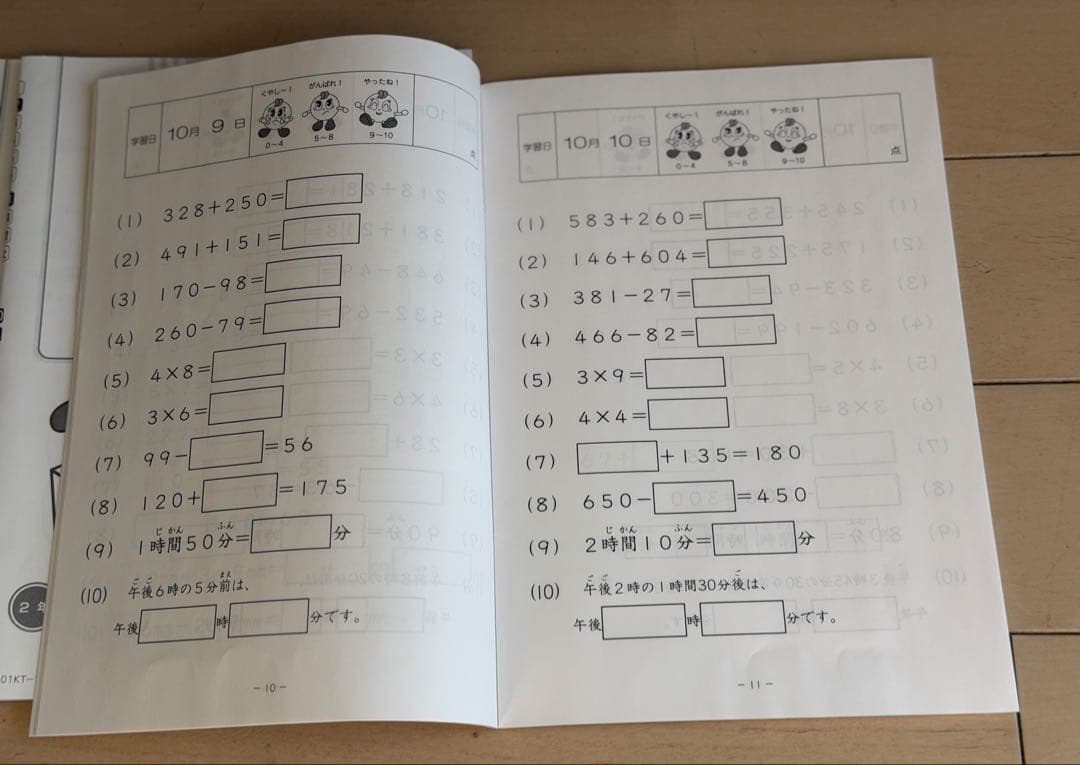 学習日 10月 9日 くやし〜! がんばれ! やったね! 点
0〜4 5〜8 9〜10
(1) 328+250=
(2) 491+151=
(3) 170−98=
(4) 260−79=
(5) 4×8=
(6) 3×6=
(7) 99− =56
(8) 120+ =175
(9) 1時間50分= 分
(10) 午後6時の5分前は、
午後 時 分です。
−10−
学習日 10月 10日 くやし〜! がんばれ! やったね! 点
0〜4 5〜8 9〜10
(1) 583+260=
(2) 146+604=
(3) 381−27=
(4) 466−82=
(5) 3×9=
(6) 4×4=
(7) +135=180
(8) 650− =450
(9) 2時間10分= 分
(10) 午後2時の1時間30分後は、
午後 時 分です。
−11−
2年
01KT−